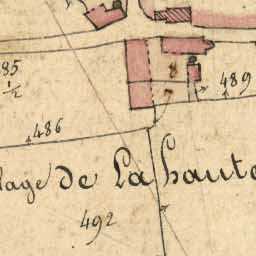 85
1/2
489
486
lage de La haute
492